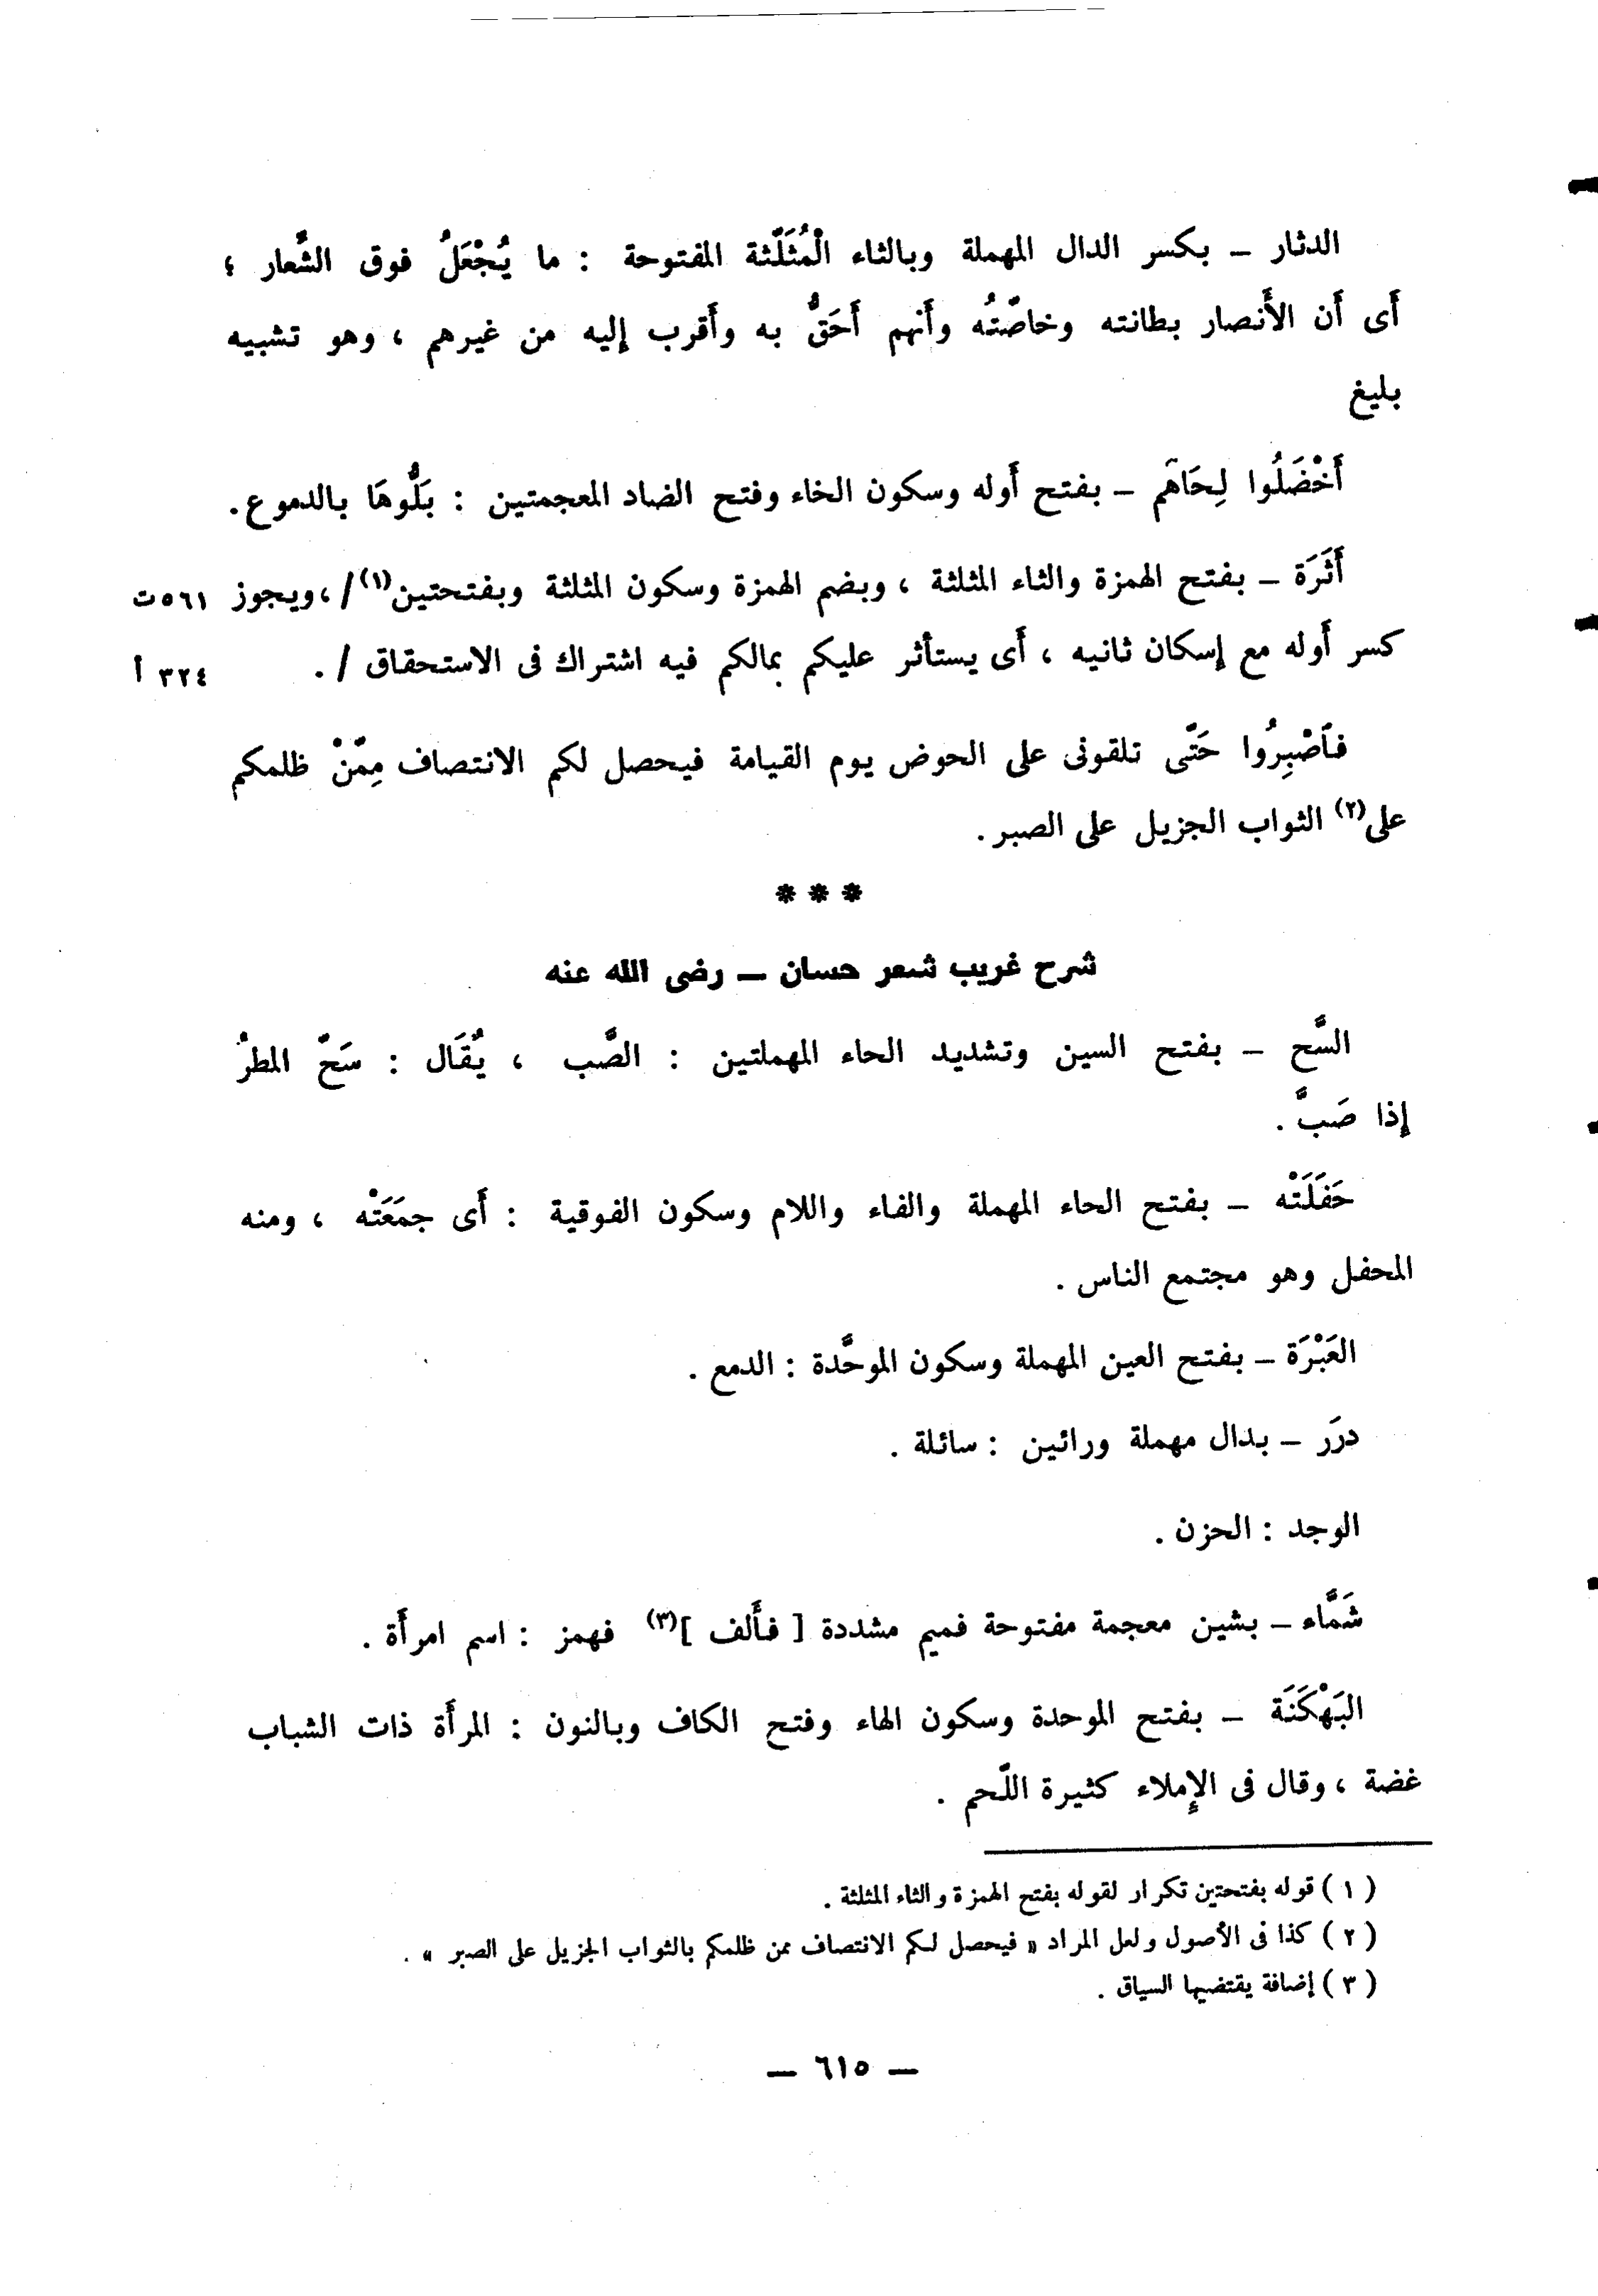 الدثار – بكسر الدال المهملة وبالثاء الْمُثَلَّثة المفتوحة : ما يُجْعَلُ فوق الشَّعار ؛
أَى أَن الأَنصار بطانته وخاصَّتُه وأَنهم أَحَقُّ به وأَقرب إليه من غيرهم ، وهو تشبيه
بليغ
أَخْضَلُوا لِحَاهَم – بفتح أَوله وسكون الخاء وفتح الضاد المعجمتين : بَلُّوهَا بالدموع.
أَثَرَة – بفتح الهمزة والثاء المثلثة ، وبضم الهمزة وسكون المثلثة وبفتحتين(١)/،ويجوز ٥٦١ت
كسر أَوله مع إسكان ثانيه ، أَى يستأثر عليكم بمالكم فيه اشتراك فى الاستحقاق /. ٣٢٤ أ
فاَصْبِرُوا حَتَّى تلقونى على الحوض يوم القيامة فيحصل لكم الانتصاف مِمَّنْ ظلمكم
على(٢) الثواب الجزيل على الصبر .
* * *
شرح غريب شعر حسان – رضى الله عنه
السَّح – بفتح السين وتشديد الحاء المهملتين : الصَّب ، يُقَال : سَحَّ المطرُ
إذا صَبَّ .
حَفَلَتْه – بفتح الحاء المهملة والفاء واللام وسكون الفوقية : أَى جمَعَتْه ، ومنه
المحفل وهو مجتمع الناس .
العَبْرَة – بفتح العين المهملة وسكون الموحَّدة : الدمع .
درَر – بدال مهملة ورائين : سائلة .
الوجد : الحزن .
شَمَّاء – بشين معجمة مفتوحة فميم مشددة [ فأَلف ](٣) فهمز : اسم امرأَة .
البَهْكَنَة – بفتح الموحدة وسكون الهاء وفتح الكاف وبالنون : المرأَة ذات الشباب
غضة ، وقال فى الإِملاء كثيرة اللَّحم .
( ١ ) قوله بفتحتين تكرار لقوله بفتح الهمزة والثاء المثلثة .
( ٢ ) كذا فى الأصول ولعل المراد « فيحصل لكم الانتصاف ممن ظلمكم بالثواب الجزيل على الصبر » .
( ٣ ) إضافة يقتضيها السياق .
– ٦١٥ –